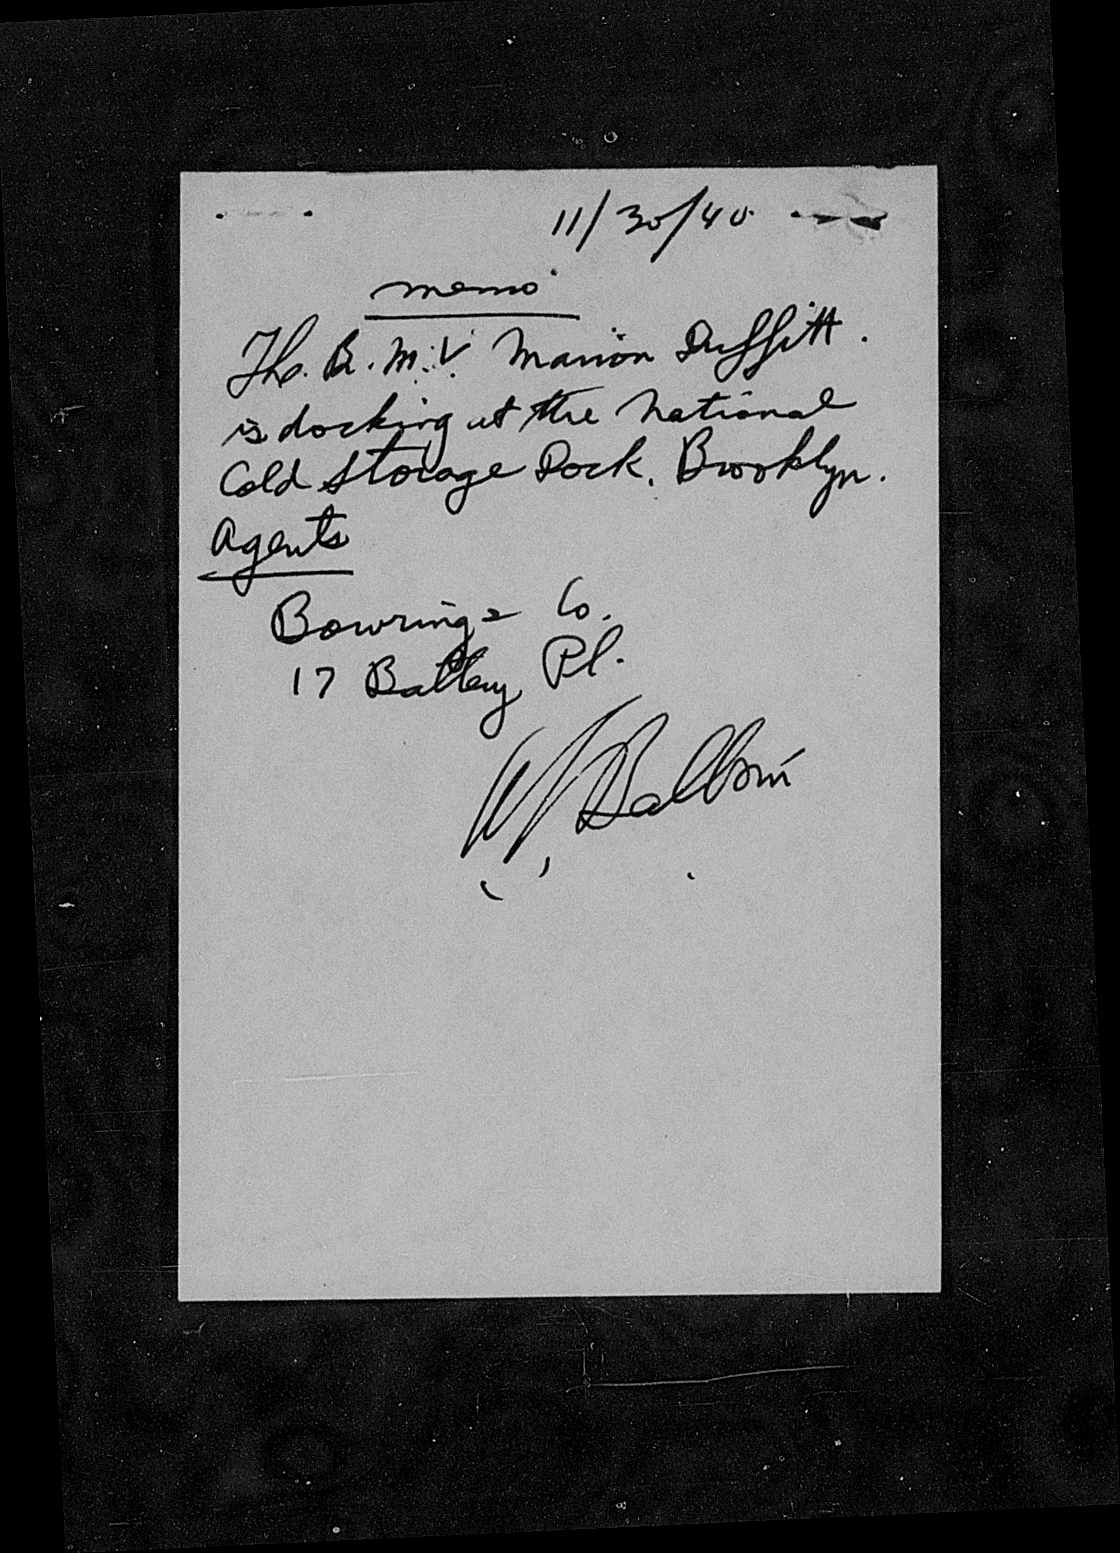 11/30/40
memo
The B. M. V Marion Duffitt.
is docking at the National
Cold Storage Dock, Brooklyn.
Agents
Bowrings Co.
17 Battery Pl.